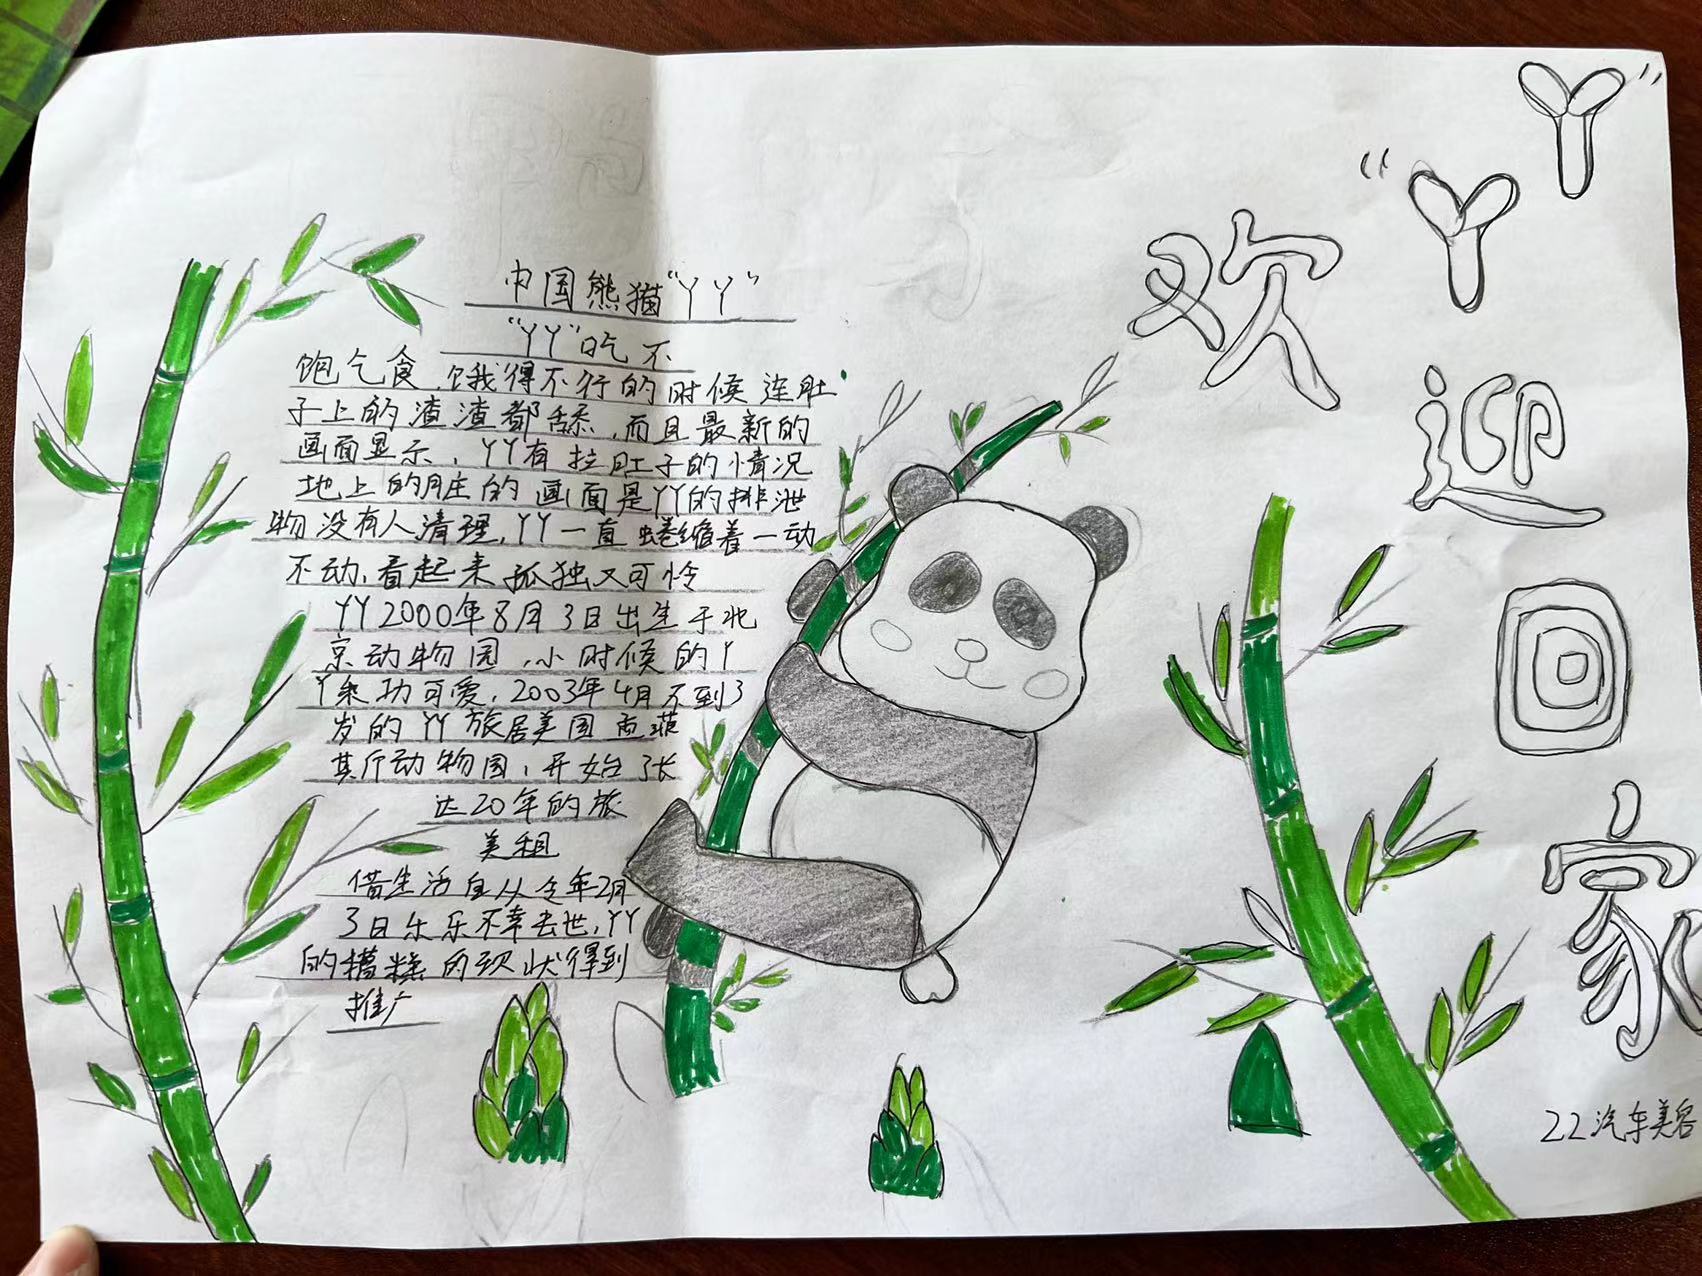 中国熊猫“丫丫”
“丫丫”吃不
饱乞食，饿得不行的时候连肚
子上的渣渣都舔，而且最新的
画面显示，丫丫有拉肚子的情况
地上的脏的画面是丫丫的排泄
物没有人清理，丫丫一直蜷缩着一动
不动，看起来孤独又可怜
丫丫2000年8月3日出生于北
京动物园，小时候的丫
丫乖巧可爱，2003年4月不到3
岁的丫丫旅居美国孟菲
其斤动物园，开始了长
达20年的旅
美租
借生活自从今年2月
3日乐乐不幸去世，丫丫
的糟糕的现状得到
推广
欢
“丫丫”
迎
回
家
22汽车美容